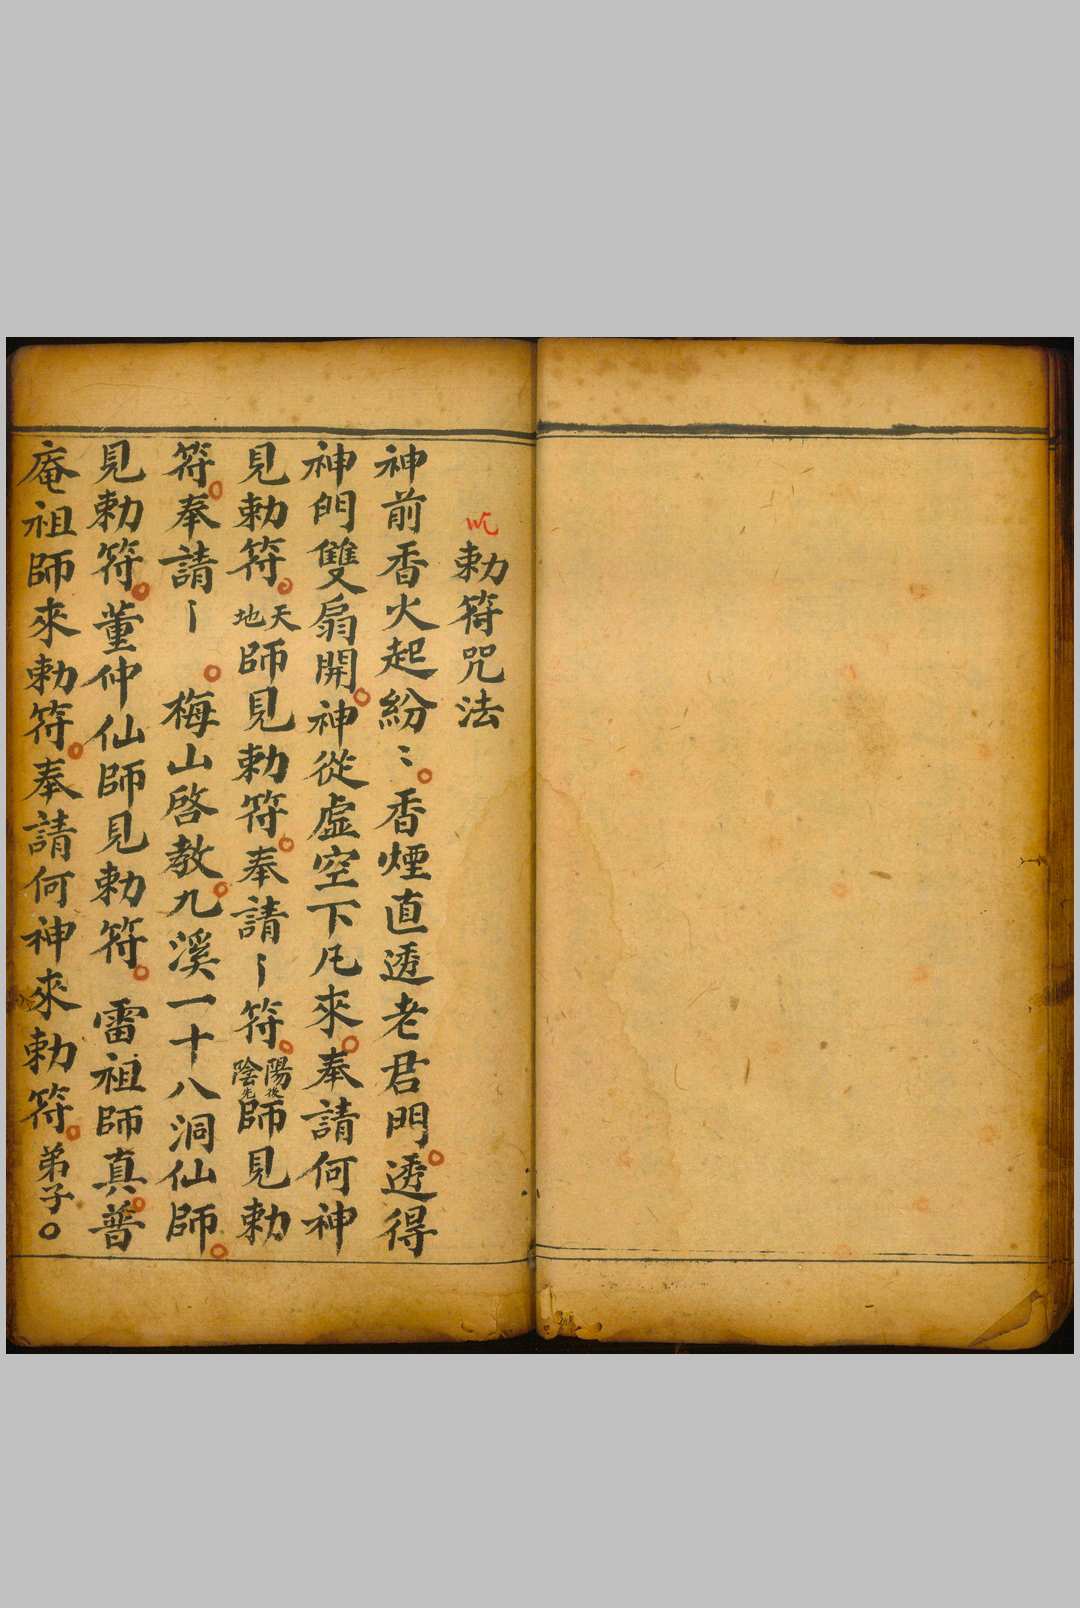 勅符咒法
神前香火起紛〻香煙直透老君門透得
神門雙扇開神從虛空下凡來奉請何神
見勅符天地師見勅符奉請〡符陽後陰先師見勅
符奉請〡梅山啓教九溪一十八洞仙師
見勅符董仲仙師見勅符雷祖師真普
庵祖師來勅符奉請何神來勅符弟子〇